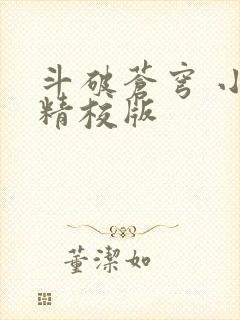 斗破苍穹 小
精校版
董潔如